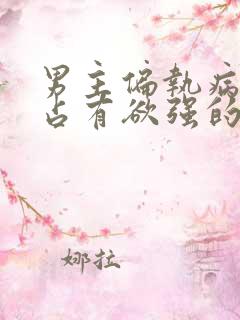 男主偏執病
占有欲强的
娜拉